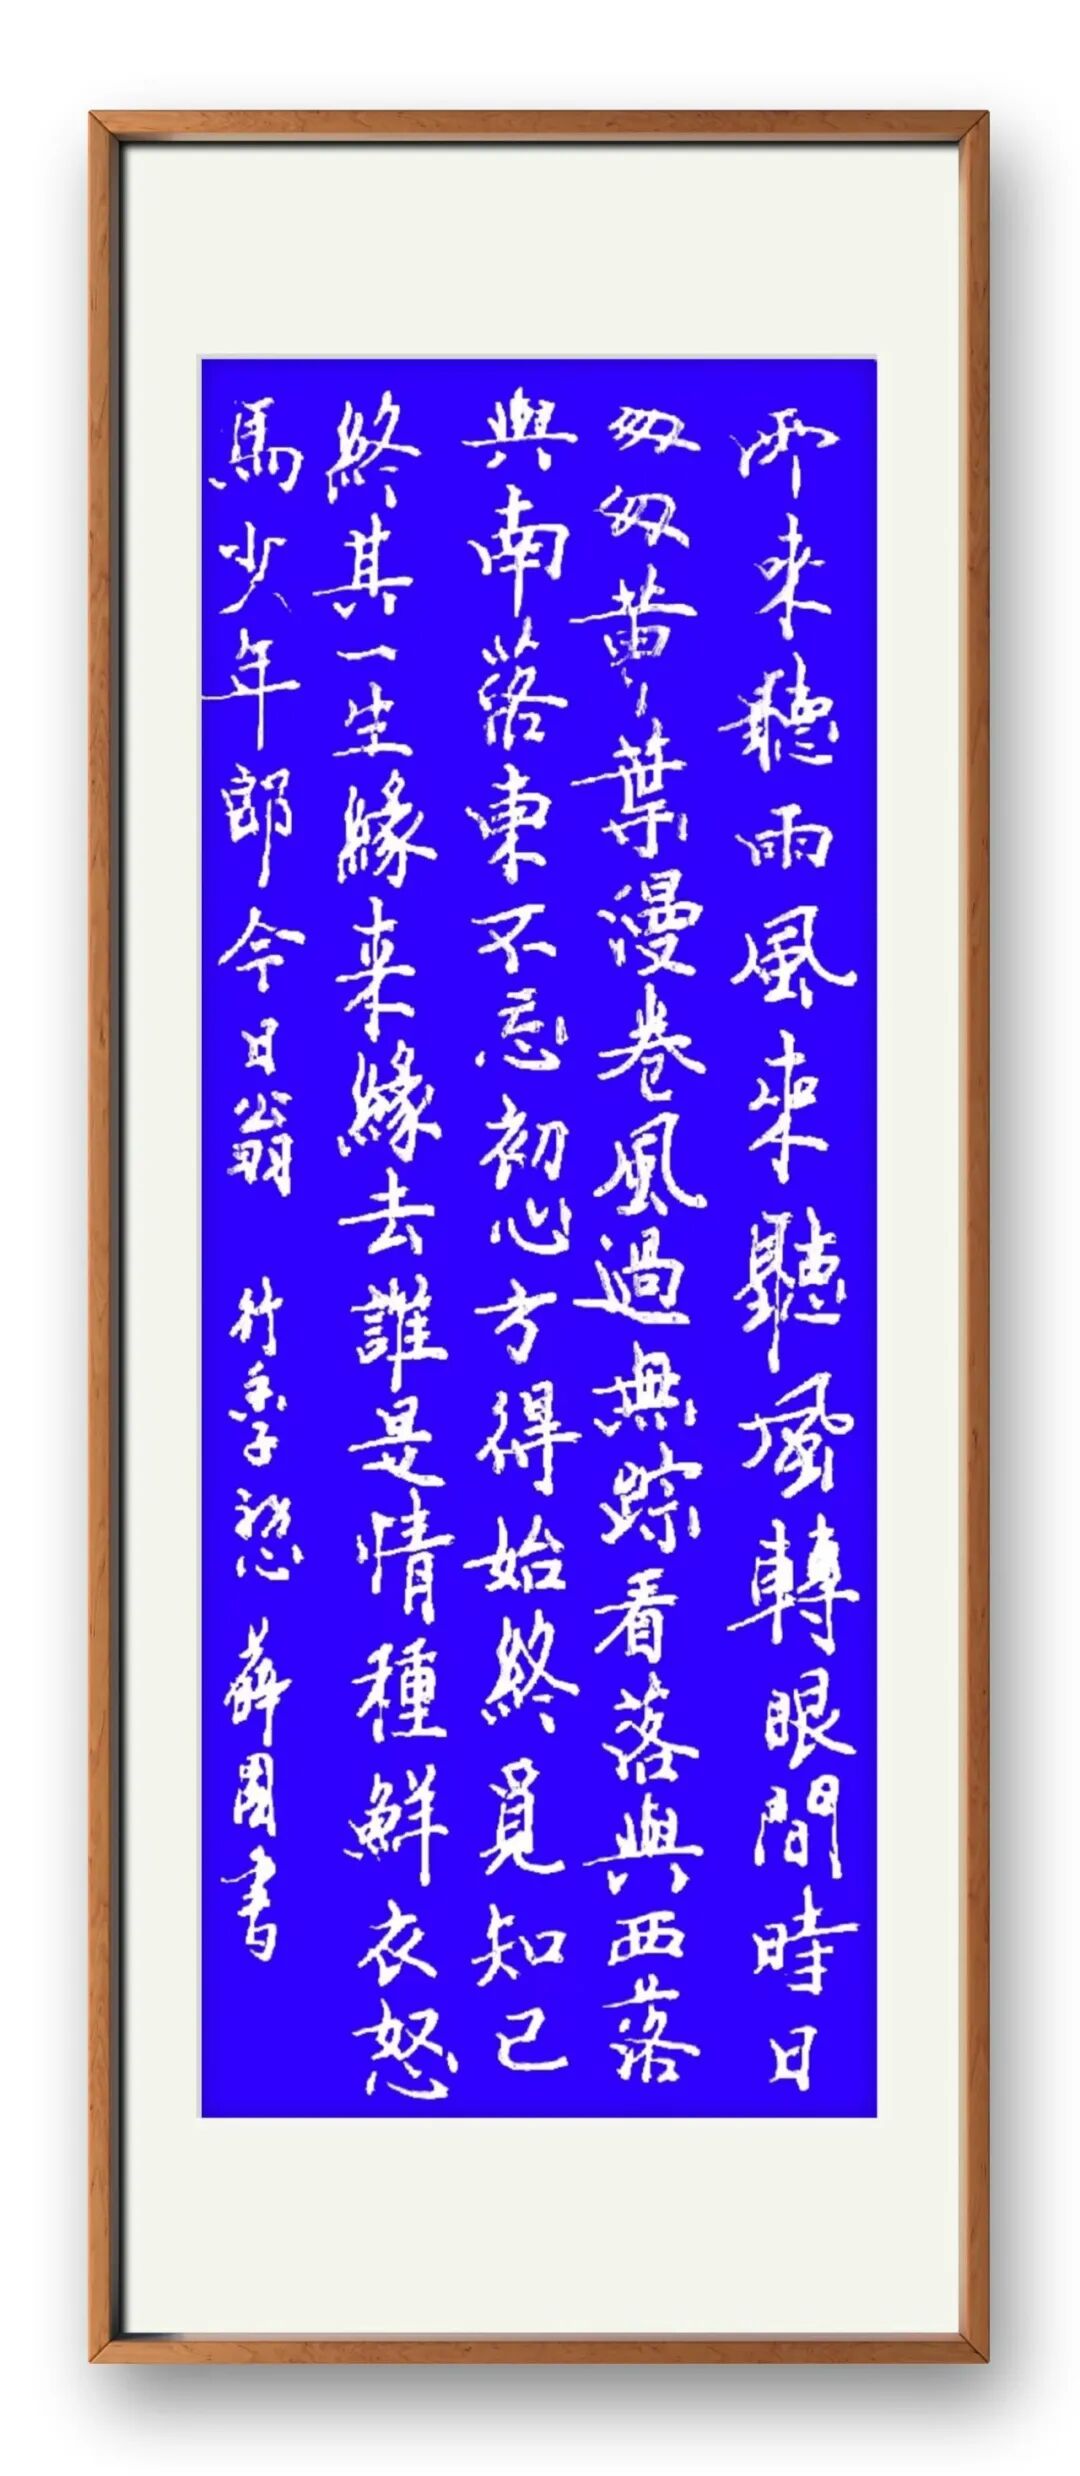 雨來聽雨風來聽風轉眼間時日
匆匆黄葉漫卷風過無踪看落與西落
與南落東不忘初心方得始終覓知己
終其一生緣来緣去誰是情種鮮衣怒
馬少年郎今日翁 行香子 初心 薛國書